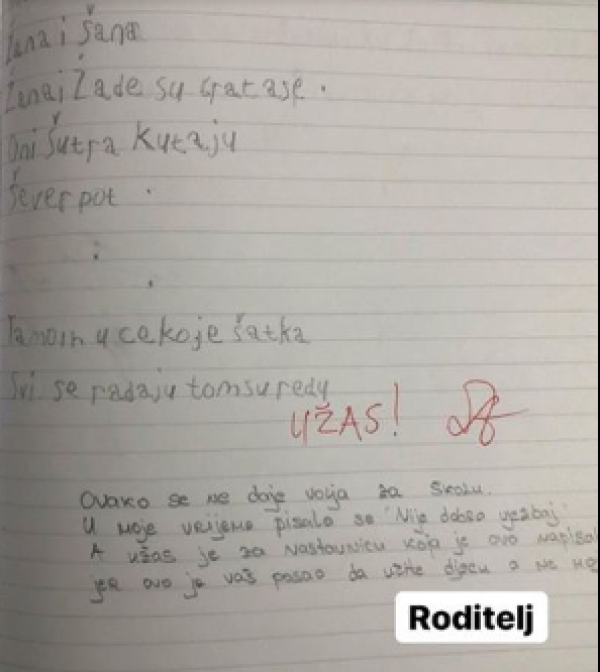 Žana i Šana
Žana i Žade su cpatase.
Oni Šutra Kutaju
Šever pot.
u cekoje šatka
Svi se radaju tomsuredu
UŽAS!
Ovako se ne daje volja za školu.
U moje vrijeme pisalo se "Nije dobro vježbaj"
A užas je za nastavnicu koja je ovo napisal
jer ovo je vaš posao da učite djecu a ne
Roditelj